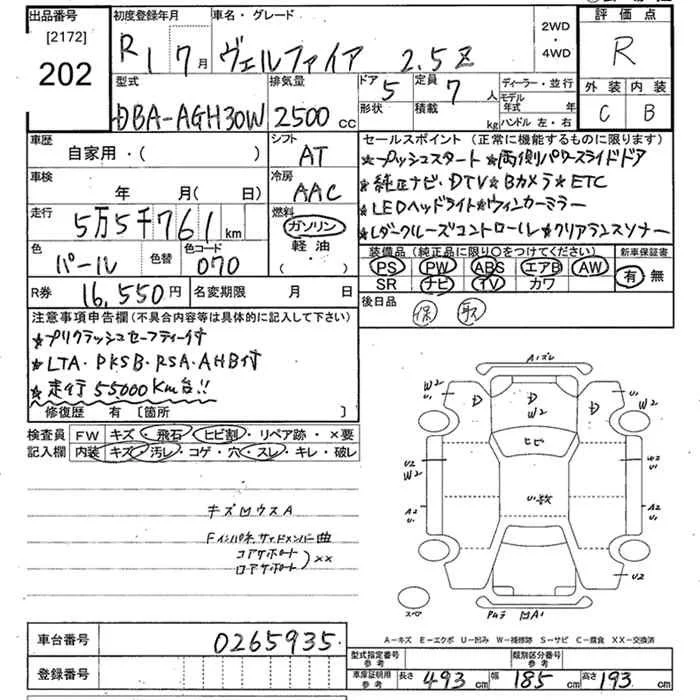 出品番号 初度登録年月 車名・グレード 2WD・4WD 評価点
[2172]
202 R1 7月 ヴェルファイア 2.5Z R
型式 排気量 ドア 5 定員 7人 ディーラー・並行 外装 内装
DBA-AGH30W 2500cc 形状 積載 kg モデル年式 年 ハンドル 左・右 C B
車歴 シフト セールスポイント (正常に機能するものに限ります)
自家用・( ) AT ★プッシュスタート★両側パワースライドドア
車検 冷房 ★純正ナビ・DTV★Bカメラ★ETC
年 月(日) AAC ★LEDヘッドライト★ウィンカーミラー
走行 燃料 ★レーダークルーズコントロール★クリアランスソナー
5万5千761km ガソリン
色 色替 色コード 軽油 装備品 (純正品に限り○をつけてください) 新車保証書
パール 070 (・) PS PW ABS エアB AW 有 無
SR ナビ TV カワ
R券 16,550円 名変期限 月 日 後日品 保 取
注意事項申告欄(不具合内容等は具体的に記入して下さい)
★プリクラッシュセーフティー付
★LTA・PKSB・RSA・AHB付
★走行55000Km台!!
修復歴 有 [箇所 ]
検査員 FW キズ・飛石・ヒビ割・リペア跡・×要
記入欄 内装 キズ・汚レ・コゲ・穴・スレ・キレ・破レ
キズ凹ウスA
Fインパネ,サイドメンバー曲
コアサポート
ロアサポート )××
A1ズレ
W2 U1 D W2 D W2 U1
ヒビ
U2 W2 W2 U1
U1 散
A2 U1 A2 U1
U2
スペア
A-キズ E-エクボ U-凹み W-補修跡 S-サビ C-腐食 XX-交換済
車台番号 0265935.
登録番号
型式指定番号 参考 類別区分番号 参考
車庫証明用 参考 長さ 493cm 幅 185cm 高さ 193cm